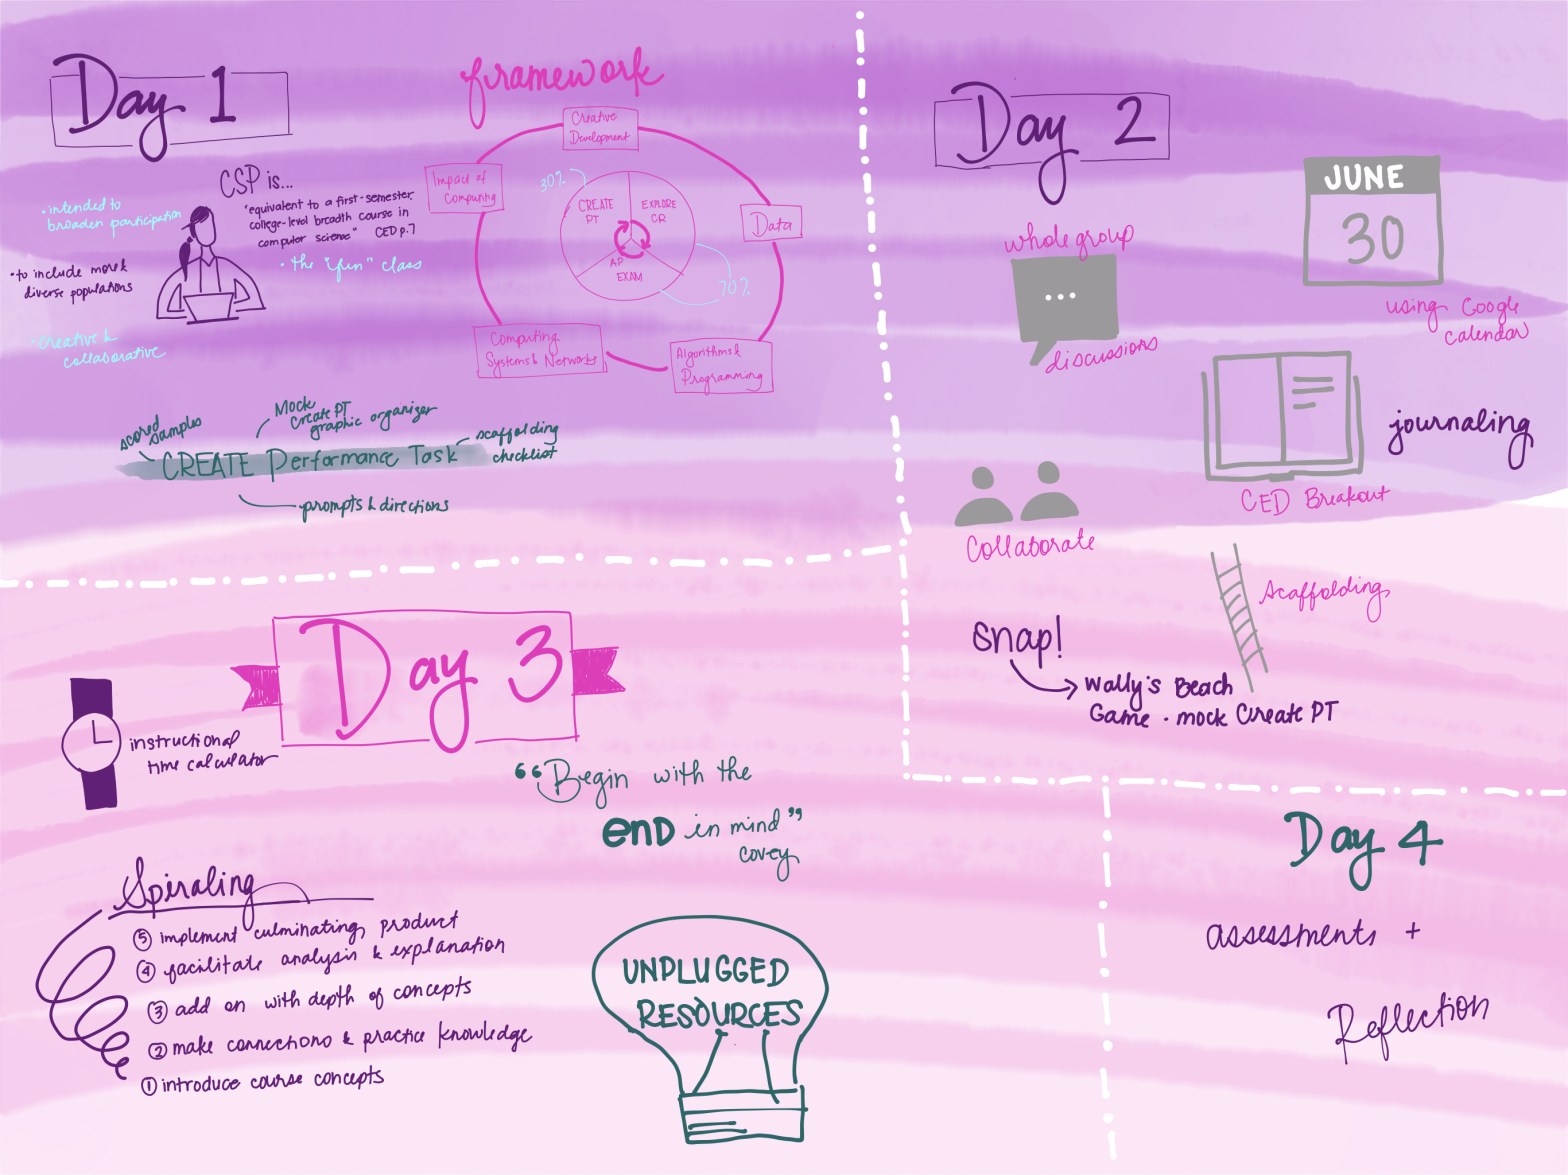 Day 1
CSP is...
"equivalent to a first-semester
college-level breadth course in
computer science" CED p.7
• the "fun" class
• intended to
broaden participation
• to include more &
diverse populations
• Creative &
collaborative
framework
Creative
Development
Data
Algorithms &
Programming
Computing
Systems & Networks
Impact of
Computing
30%
CREATE
PT
EXPLORE
CR
AP
EXAM
70%
scored
samples
Mock
Create PT
graphic organizer
scaffolding
checklist
CREATE Performance Task
prompts & directions
Day 2
whole group
...
discussions
JUNE
30
using Google
calendar
journaling
CED Breakout
Collaborate
Scaffolding
Snap!
Wally's Beach
Game · mock Create PT
Day 3
instructional
time calculator
"Begin with the
END in mind"
covey
Spiraling
⑤ implement culminating product
④ facilitate analysis & explanation
③ add on with depth of concepts
② make connections & practice knowledge
① introduce course concepts
UNPLUGGED
RESOURCES
Day 4
assessments +
Reflection